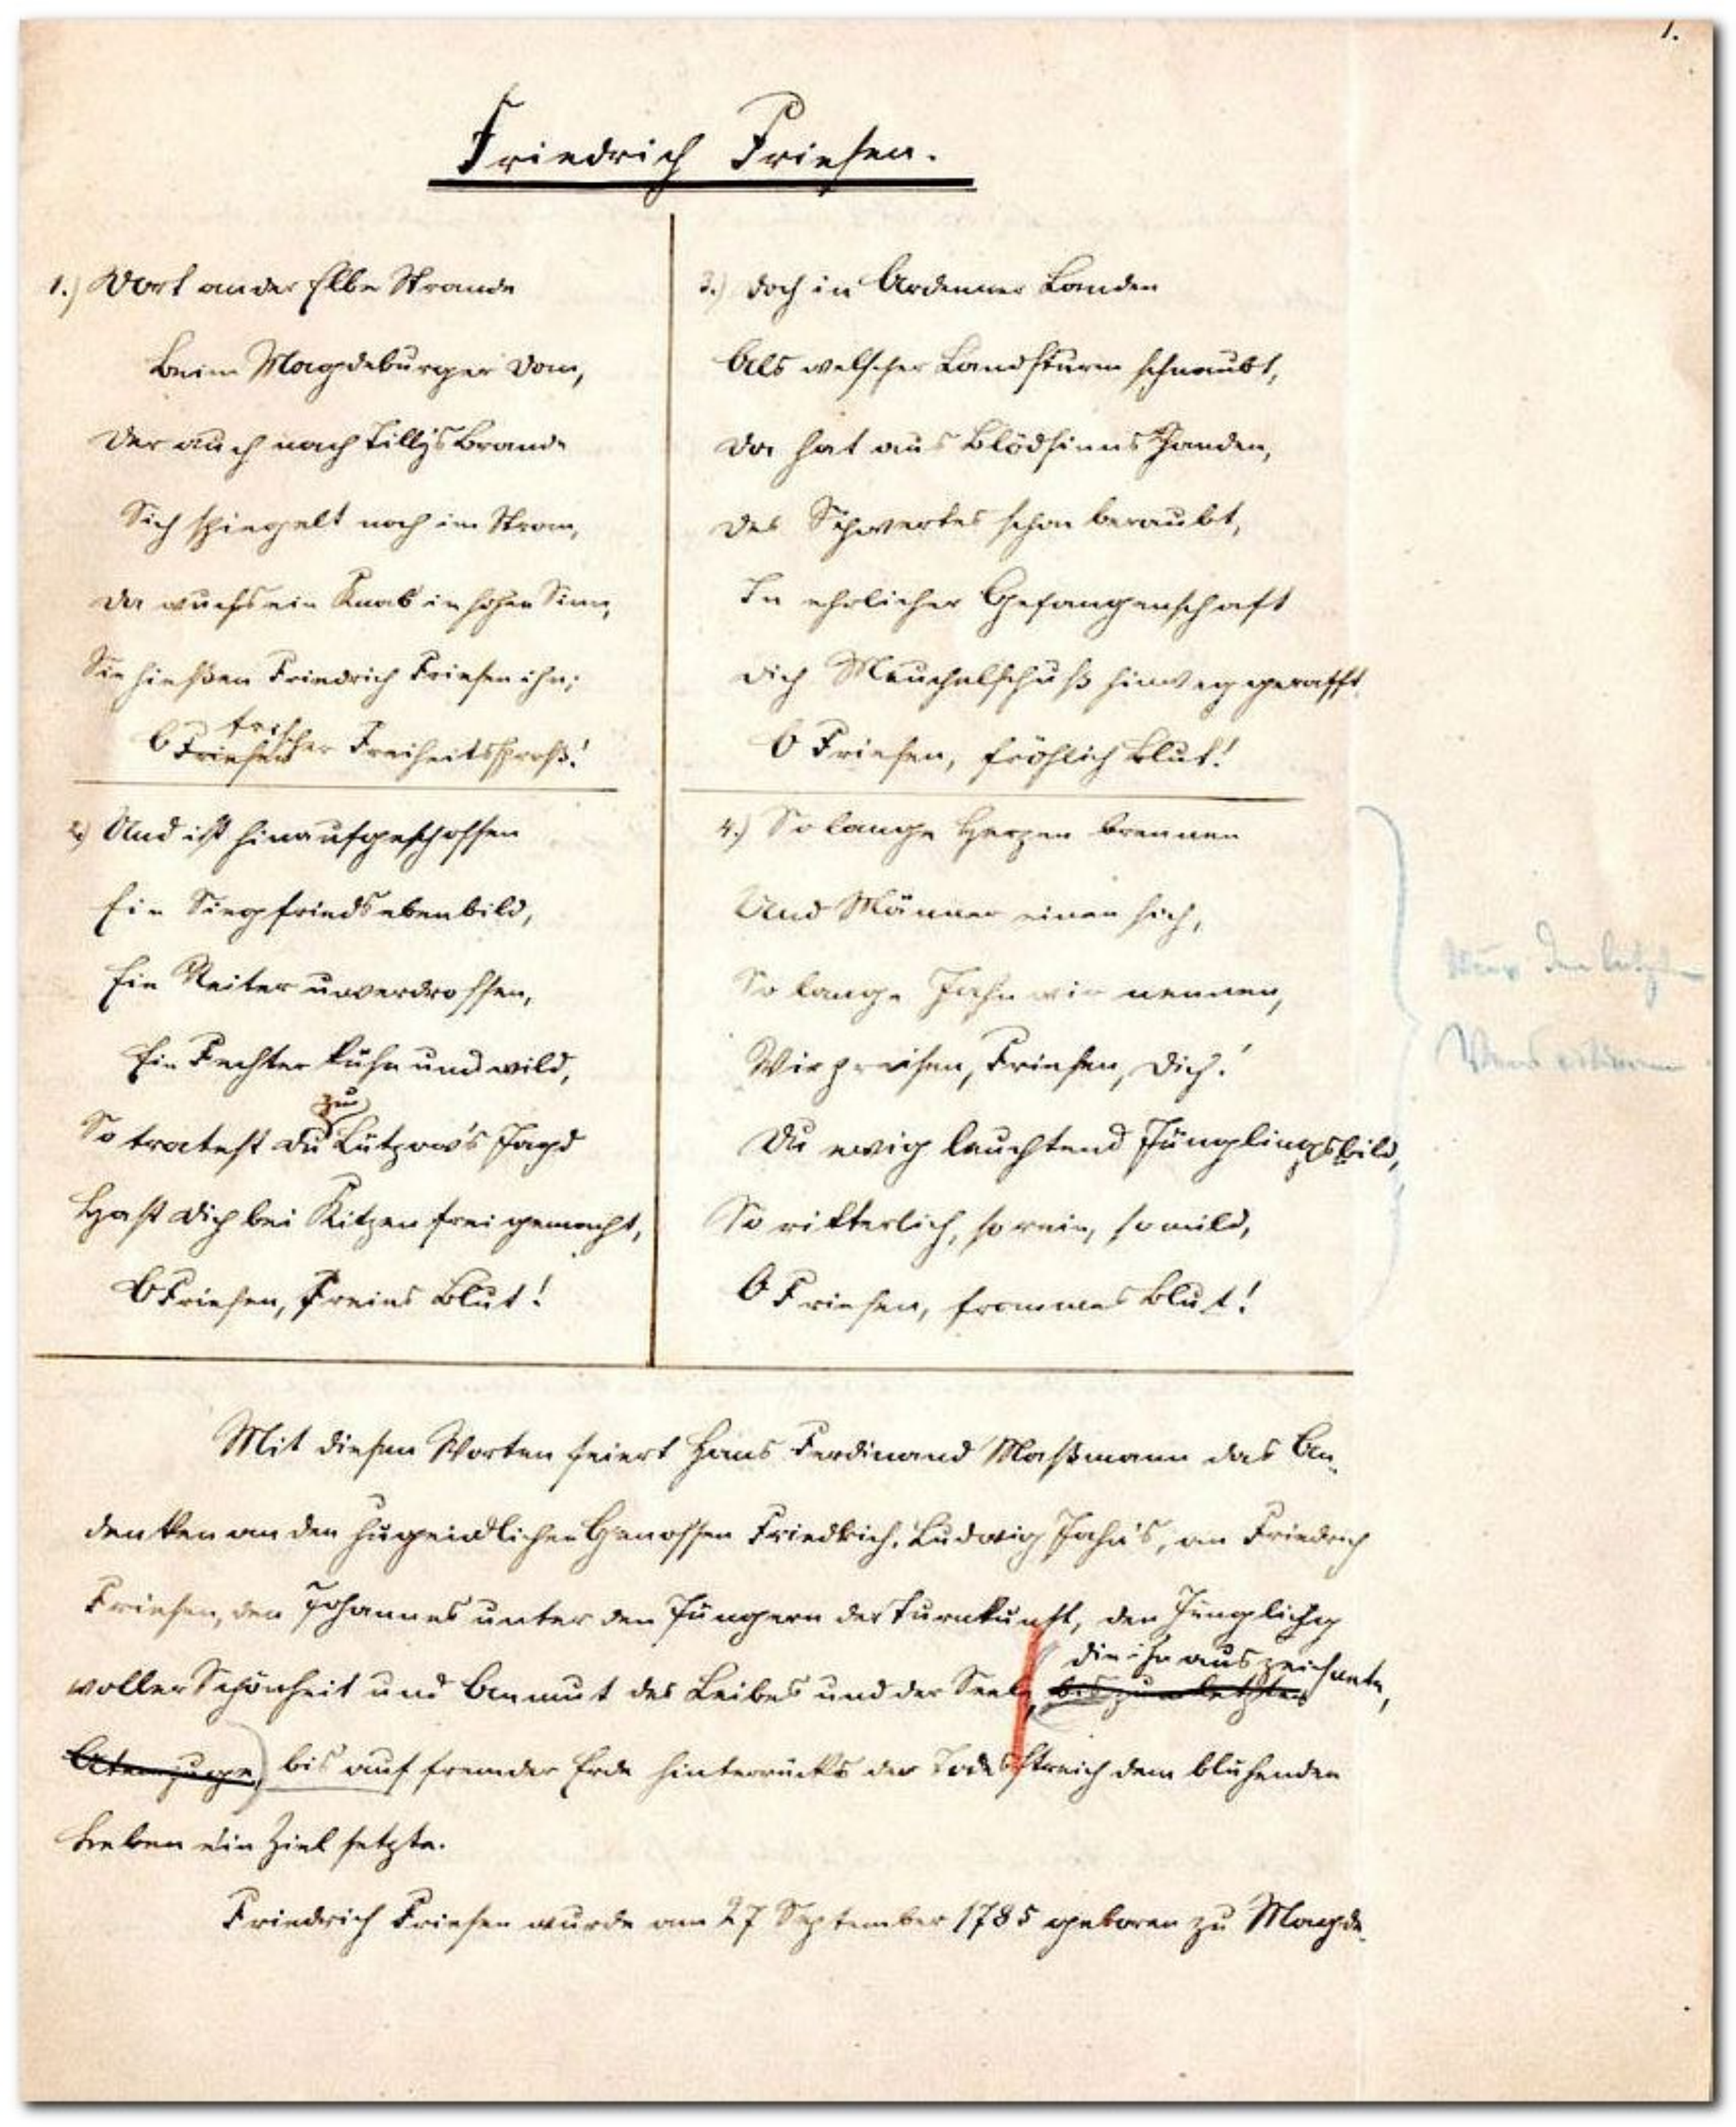 1.
Friedrich Friesen.
1.) Dort an der Elbe Strande
Beim Magdeburger Dom,
Der auch nach Tillys Brande
Sich spiegelt noch im Strom,
Da wuchs ein Knab in hohen Sinn,
Sie hießen Friedrich Friesen ihn;
O frischer Freiheitssproß!
2.) Und ist hinaufgeschossen
Ein Siegfriedsebenbild,
Ein Reiter unverdrossen,
Ein Fechter kühn und wild,
zu
So tratest du Lützow's Jagd
Hast dich bei Kitzen frei gemacht,
O Friesen, Freies Blut!
3.) Doch in Ardenner Landen
Als welscher Landsturm schnaubt,
Da hat aus Blödsinns Handen,
Des Schwertes schon beraubt,
In ehrlicher Gefangenschaft
Dich Meuchelschuß hinweggerafft
O Friesen, fröhlich Blut!
4.) So lange Herzen brennen
Und Männer einen sich,
So lange Jahn wir nennen,
Wir preisen, Friesen, Dich!
Du ewig leuchtend Jünglingsbild,
So ritterlich, so rein, so mild,
O Friesen, frommes Blut!
Nur den letzten
Vers
Mit diesen Worten feiert Hans Ferdinand Maßmann das An-
denken an den jugendlichen Genossen Friedrich Ludwig Jahn's, an Friedrich
Friesen, den Johannes unter den Jüngern der Turnkunst, den Jüngling
die ihn auszeichnete,
voller Schönheit und Anmut des Leibes und der Seele, bis zum letzten
Atemzuge, bis auf fremder Erde hinterrücks der Todesstreich dem blühenden
Leben ein Ziel setzte.
Friedrich Friesen wurde am 27 September 1785 geboren zu Magde-